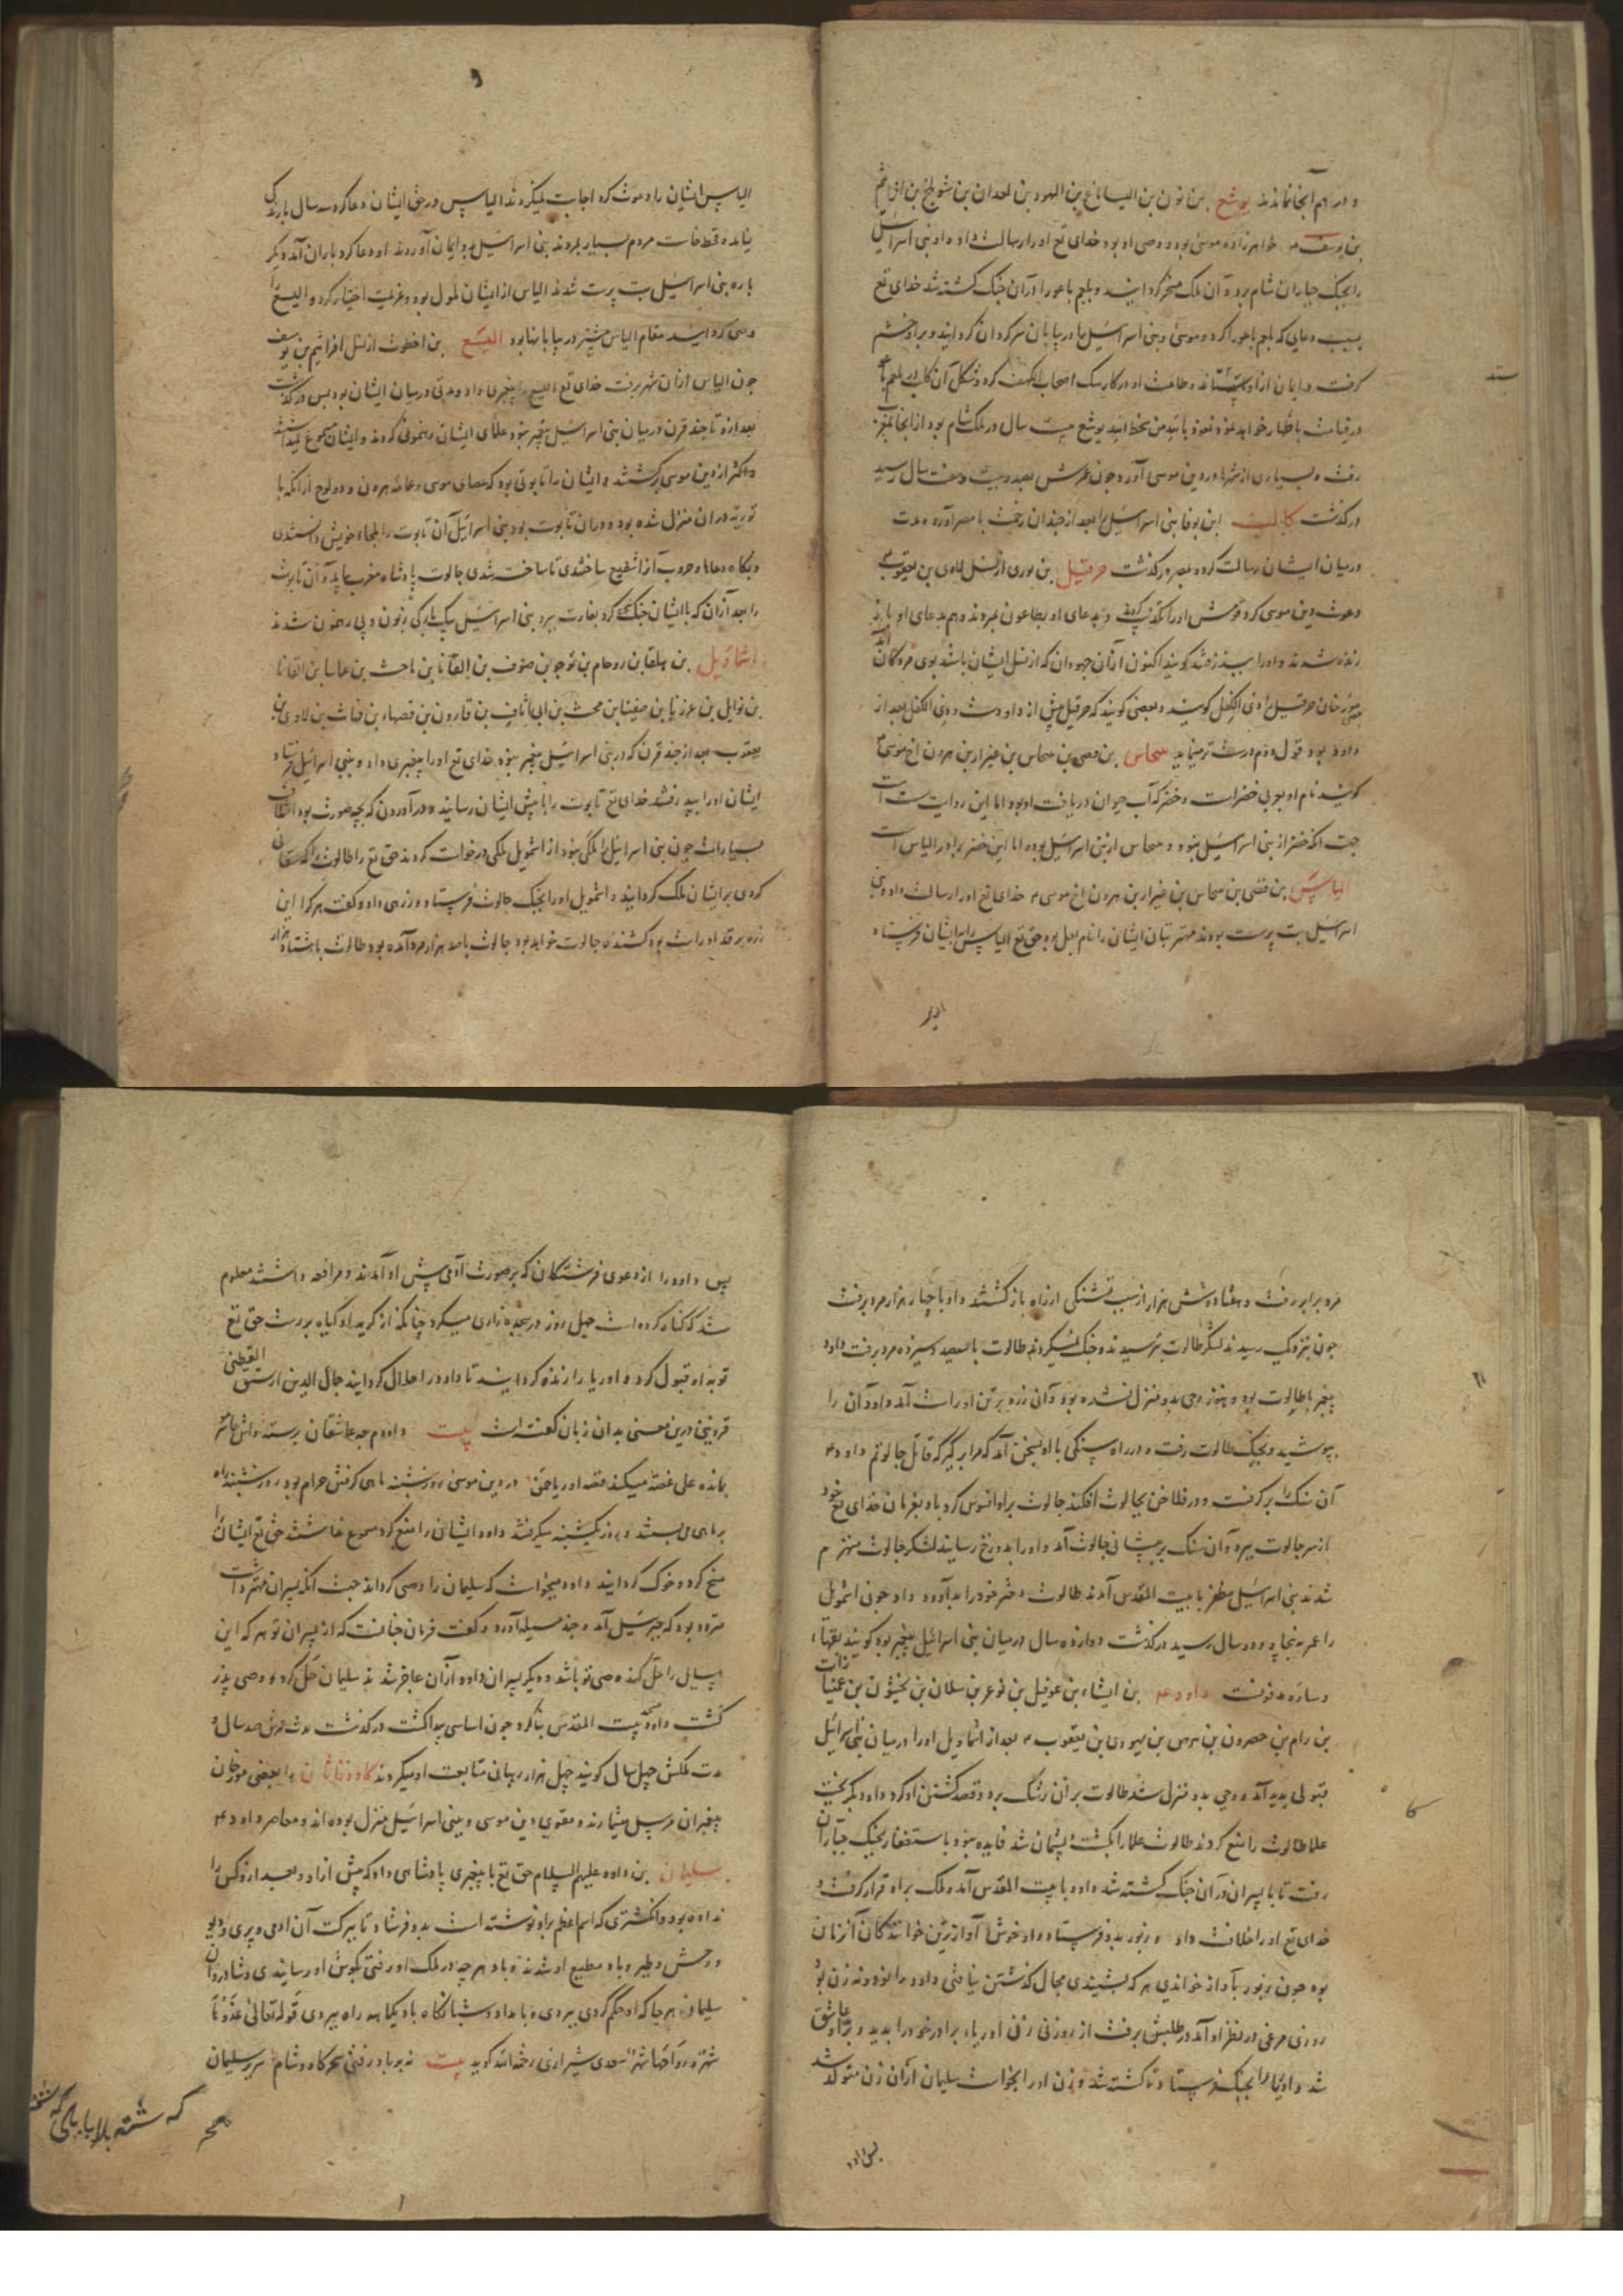 و در هم آنجا نماندند یوشع بن نون بن الیساماع بن الیهود بن لعدان بن شوتلخ بن افرائیم
بن یوسف م خواهرزاده موسی بود و وصی او بود خدای تع او را رسالت داد و او بنی اسرائیل
را بجنگ جباران شام برد و آن ملک مسخر گردانید و بلعم باعور را در آن جنگ کشته شد خدای تع
بسبب دعایی که بلعم باعورا کرد و موسی و بنی اسرائیل را در بیابان سرگردان گردانید و برو خشم
گرفت و ایمان ازو بستاند و طاعت او در کار سگ اصحاب الکهف کرد و شکل آن کلب در بلعم
در قیامت باظهار خواهد نعوذ بالله من سخط الله یوشع بیست سال در ملک شام بود از آنجا بمغرب
رفت و بسیاری از شهرها در دین موسی آورد چون عمرش بصد و بیست و هفت سال رسید
درگذشت کالب ابن یوفنا بنی اسرائیل را بعد از چندان زحمت با مصر آورد و مدت
در میان ایشان رسالت کرد و بمصر درگذشت حزقیل بن بوری از نسل لاوی بن یعقوب
دعوت دین موسی کرد قومش او را تکذیب کردند و بدعای او بطاعون بمردند و هم بدعای او باز
زنده شدند و او را بپذرفتند گویند اکنون از آن جهودان که از نسل ایشان باشد بوی مردگان آید
بعضی مورخان حزقیل را ذی الکفل گویند و بعضی گویند که حزقیل پیش از داودست و ذی الکفل بعد از
داود بود قول دوم درست تر مینماید نحاس بن فصی بن نحاس بن عیزار بن هرون اخ موسی
گویند نام او بعربی خضر است و خضر که آب حیوان دریافت او بود اما این روایت سست است
جهت آنکه خضر از بنی اسرائیل نبود و نحاس از بنی اسرائیل بوده اما این خضر برادر الیاس است
الیاس بن فصی بن نحاس بن عیزار بن هرون اخ موسی م خدای تع او را رسالت داد و بنی
اسرائیل بت پرست بودند مهتر بتان ایشان را نام بعل بود حق تع الیاس را بایشان فرستاد
الیاس ایشان را دعوت کرد اجابت نمیکردند الیاس در حق ایشان دعا کرد سه سال بارندگی
نیامد و قحط خاست مردم بسیار بمردند بنی اسرائیل بدو ایمان آوردند او دعا کرد باران آمد دیگر
باره بنی اسرائیل بت پرست شدند الیاس از ایشان ملول بود و عزلت اختیار کرد و الیسع را
وصی گردانید مقام الیاس بیشتر در بیابانها بود الیسع بن اخطوب از نسل افرائیم بن یوسف
چون الیاس از آن شهر برفت خدای تع الیسع را پیغمبری داد و مدتی در میان ایشان بود پس درگذشت
بعد ازو تا چند قرن در میان بنی اسرائیل پیغمبر نبود علمای ایشان رهنمونی کردند و ایشان مسموع نمیداشتند
و اکثر از دین موسی برگشتند و ایشان را تابوتی بود که عصای موسی و عمامه هرون و دو لوح از آنکه با
توریة در آن منزل شده بود در آن تابوت بود بنی اسرائیل آن تابوت را ملجاء خویش دانستندی
و بگاه دعاها و حروب آنرا شفیع ساختندی تا ساخته شدی جالوت پادشاه مغرب بیامد و آن تابوت
را بعد از آن که با ایشان جنگ کرد بغارت ببرد بنی اسرائیل بیکبارگی زبون و بی رهنمون شدند
اشماویل بن هلقا بن روحام بن توحو بن صوف بن القانا بن باحث بن عاسا بن القانا
بن نوایل بن عرزیا بن صفینا بن محث بن ابی اثاف بن قارون بن قصهار بن قناث بن لاوی بن
یعقوب بعد از چند قرن که در بنی اسرائیل پیغمبر نبود خدای تع او را پیغمبری داد و ببنی اسرائیل فرستاد
ایشان او را بپذرفتند خدای تع تابوت را با پیش ایشان رسانید و در آوردن که بچه صورت بود اختلاف
بسیارست چون بنی اسرائیل را ملکی نبود از اشمویل ملکی درخواست کردند حق تع را طالوت را که سقائی
کردی بر ایشان ملک گردانید و اشمویل او را بجنگ جالوت فرستاد و زرهی داد و گفت هر کرا این
زره بر قد او راست بود کشنده جالوت خواهد بود جالوت با صد هزار مرد آمده بود طالوت با هشتاد هزار
مرد برابر رفت و هفتاد و شش هزار از سبب تشنگی از راه بازگشتند و او با چهار هزار مرد برفت
چون نزدیک رسیدند لشکر طالوت بترسیدند و جنگ نمیکردند طالوت با سیصد و سیزده مرد برفت داود
پیغمبر با طالوت بود و هنوز وحی بدو منزل نشده بود و آن زره بر تن او راست آمد داود آن را
بپوشید و بجنگ طالوت رفت و در راه سنگی با او بسخن آمد که مرا برگیر که قاتل جالوتم داود م
آن سنگ را برگرفت و در فلاخن بجالوت افکند جالوت برو افسوس کرد باد بفرمان خدای تع خود
از سر جالوت ببرد و آن سنگ بر پیشانی جالوت آمد و او را بدوزخ رسانید لشکر جالوت منهزم
شدند بنی اسرائیل مظفر با بیت المقدس آمدند طالوت دختر خود را بدو داد و چون اشمویل
را عمر بپنجاه و دو سال رسید درگذشت دوازده سال در میان بنی اسرائیل پیغمبر بود گویند بقهات
و ساره مدفونست داود م بن ایشاء بن عوفیل بن فوعر بن سلان بن نخیثون بن عنیاذات
بن رام بن حصرون بن برص بن یهودی بن یعقوب م بعد از اشماویل او را در میان بنی اسرائیل
قبولی پدید آمد و وحی بدو منزل شد طالوت بر آن رشک برد و قصد کشتن او کرد داود بگریخت
علما طالوت را منع کردند طالوت علما را بکشت و پشیمان شد فایده نبود باستغفار بجنگ جباران
رفت تا با پسران در آن جنگ کشته شد داود با بیت المقدس آمد و ملک برو قرار گرفت و
خدای تع او را خلافت داد و زبور بدو فرستاد و او خوش آوازترین خوانندگان آن زمان
بود چون زبور بآواز خواندی هر که بشنیدی مجال گذشتن نیافتی داود را نود و نه زن بود
روزی مرغی در نظر او آمد در طلبش برفت از روزنی زنی اوریاء برادر خود را بدید و برو عاشق
شد و اوریا را بجنگ فرستاد تا کشته شد و زن او را بخواست سلیمان از آن زن متولد شد
پس داود
پس داود را از دعوی فرشتگان که بر صورت آدمی پیش او آمدند و مرافعه داشتند معلوم
شد که گناه کرده است چهل روز در سجده زاری میکرد چنانکه از گریه او گیاه بررست حق تع
توبه او قبول کرد و اوریا را زنده گردانید تا داود را حلال گردانید جمال الدین ارستق القطنی
قزوینی درین معنی بدان زبان گفته است بیت داودم جه عاشقان برسته
بمانده علی غصة میکند قصه اوریا حمن در دین موسی روز شنبه ماهی گرفتن حرام بود روز شنبه راه
بر ماهی می بستند و روز یکشنبه میگرفتند داود ایشان را منع کرد مسموع نداشتند حق تع ایشان را
مسخ کرد و خوک گردانید داود میخواست که سلیمان را وصی گرداند جهت آنکه پسران مهتر داشت
متردد بود که جبرئیل آمد و چند مسیله آورد و گفت فرمان چنانست که از پسران تو هر که این
مسایل را حل کند وصی تو باشد و دیگر پسران داود از آن عاجز شدند سلیمان حل کرد و وصی پدر
گشت داود بیت المقدس بنا کرد چون اساسی پیدا گشت درگذشت مدت عمرش صد سال و
مدت ملکش چهل سال گویند چهل هزار رهبان متابعت او میکردند کاد و ناثان را بعضی مورخان
پیغمبران مرسل میشمارند و مقوی دین موسی و ببنی اسرائیل منزل بوده اند و معاصر داود م
سلیمان بن داود علیهم السلام حق تع با پیغمبری پادشاهی داد که پیش ازو و بعد ازو کس را
نداده بود و انگشتری که اسم اعظم برو نوشته است بدو فرستاد تا ببرکت آن آدمی و پری و دیو
و وحش و طیر و باد مطیع او شدند و باد هر چه در ملک او رفتی بگوش او رسانیدی و شادروان
سلیمان هر جا که او حکم کردی ببردی و بامداد و شبانگاه باد یکماهه راه ببردی قوله تعالی غدوها
شهر و رواحها شهر سعدی شیرازی رحمه الله گوید بیت نه بر باد رفتی سحرگاه و شام سریر سلیمان